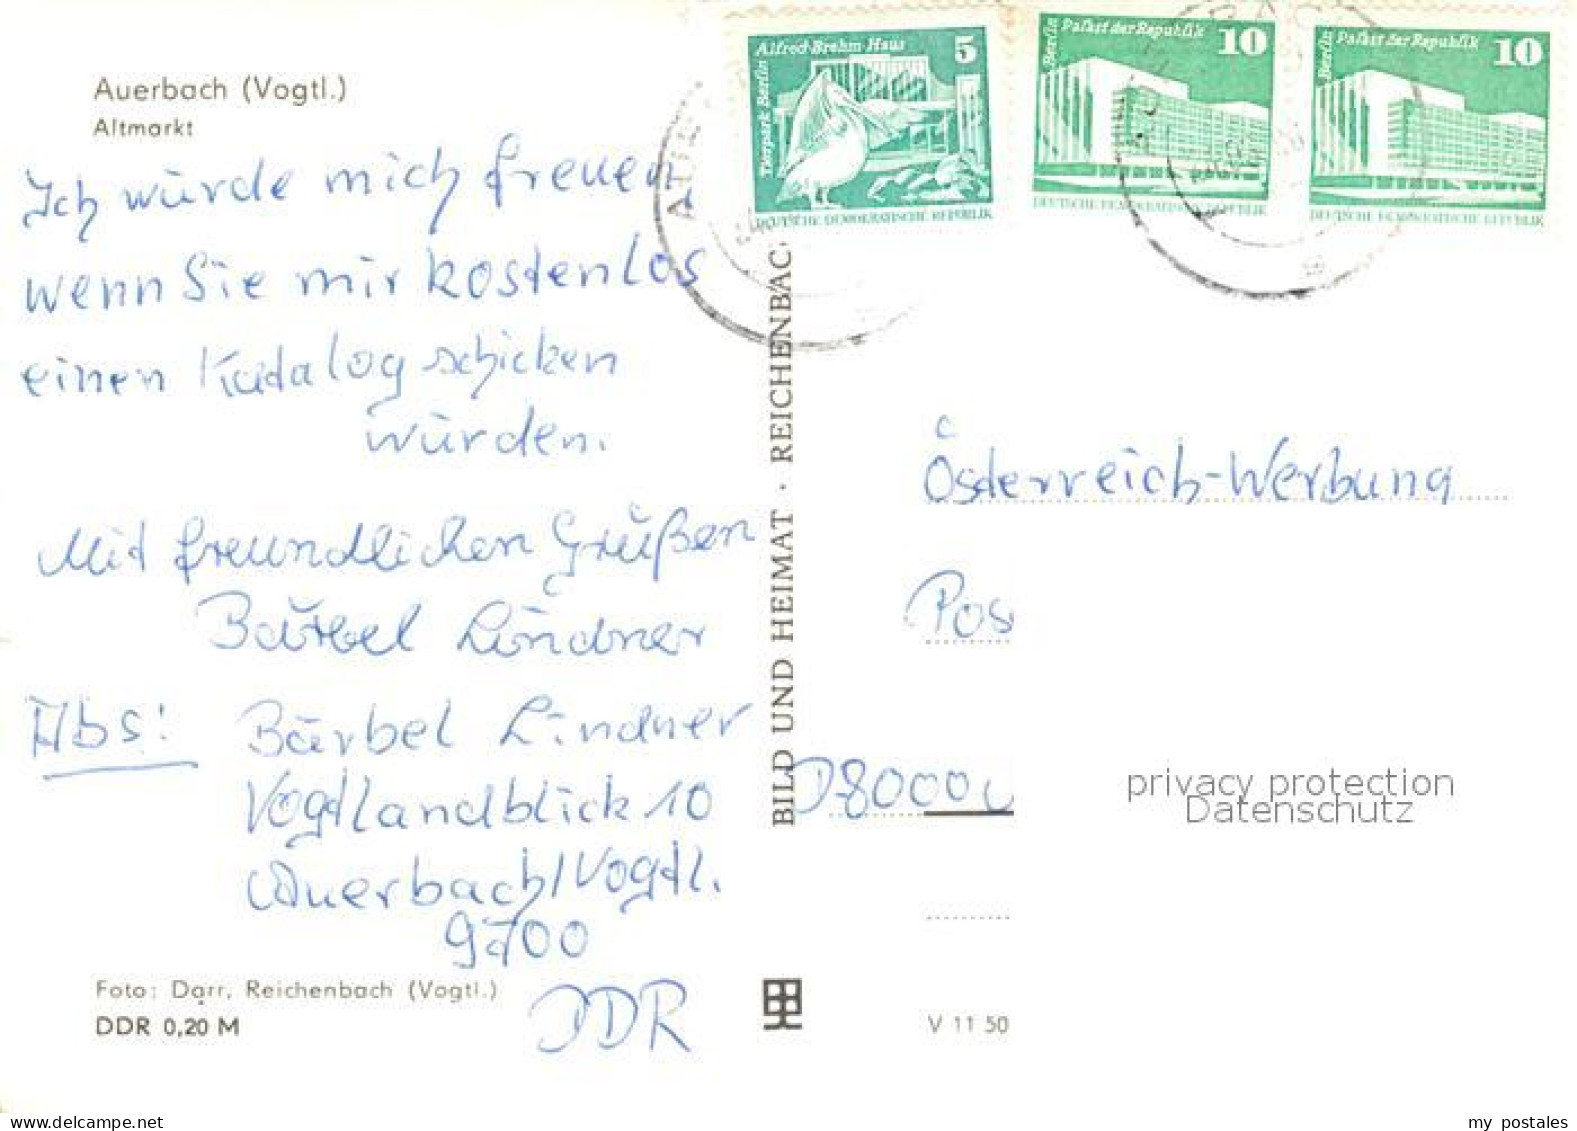 Auerbach (Vogtl.)
Altmarkt
Ich würde mich freuen,
wenn Sie mir kostenlos
einen Katalog schicken
würden.
Mit freundlichen Grüßen
Bärbel Lindner
Abs:
Bärbel Lindner
Vogtlandblick 10
Auerbach/Vogtl.
9700
DDR
Foto: Darr, Reichenbach (Vogtl.)
DDR 0,20 M
BILD UND HEIMAT · REICHENBAC
Alfred-Brehm-Haus 5
Tierpark Berlin
DEUTSCHE DEMOKRATISCHE REPUBLIK
Palast der Republik 10
Berlin
DEUTSCHE DEMOKRATISCHE REPUBLIK
Palast der Republik 10
Berlin
DEUTSCHE DEMOKRATISCHE REPUBLIK
Österreich-Werbung
Pos
D8000
privacy protection
Datenschutz
V 11 50
www.ansichtskarten-center.de
my postales